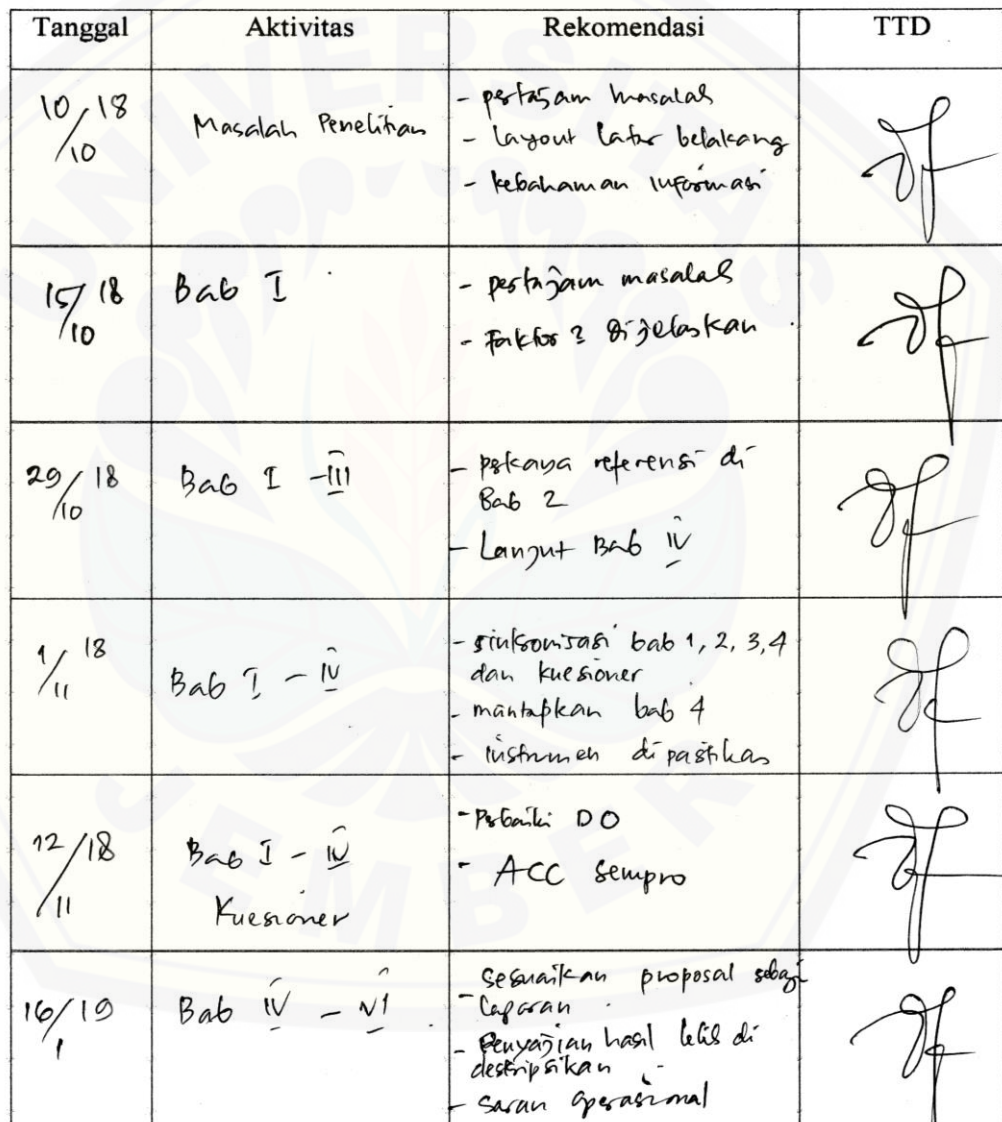 Tanggal Aktivitas Rekomendasi TTD
10/10 18 Masalah Penelitian - pertajam masalah
- Layout latar belakang
- kebaharuan informasi
15/10 18 Bab I - pertajam masalah
- Faktor2 dijelaskan
29/10 18 Bab I - III - perkaya referensi di
Bab 2
- Lanjut Bab IV
1/11 18 Bab I - IV - sinkronisasi bab 1, 2, 3, 4
dan kuesioner
- mantapkan bab 4
- instrumen dipastikan
12/11 18 Bab I - IV - Perbaiki DO
Kuesioner - ACC sempro
16/1 19 Bab IV - VI - sesuaikan proposal sebagi
laporan
- Penyajian hasil lebih di
deskripsikan
- saran operasional
UNIVERSITAS
JEMBER